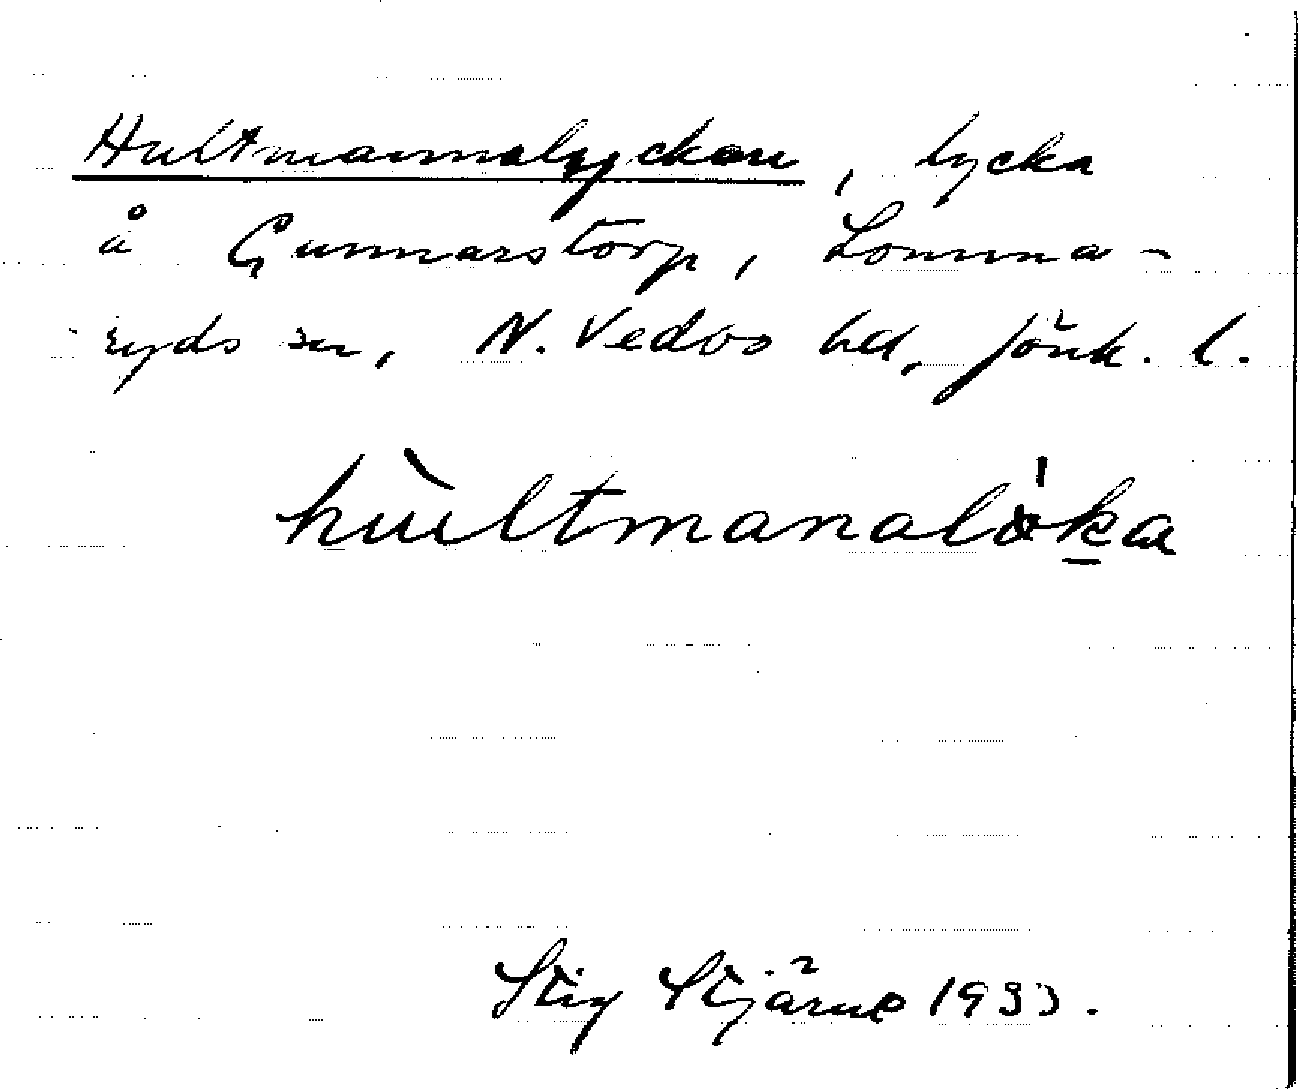 Hultmannalyckan, lycka
å Gunnarstorp, Lomma-
ryds sn, N. Vedbo hd, Jönk. l.
hùltmanalö̀ka
Stig Stjärne 1933.